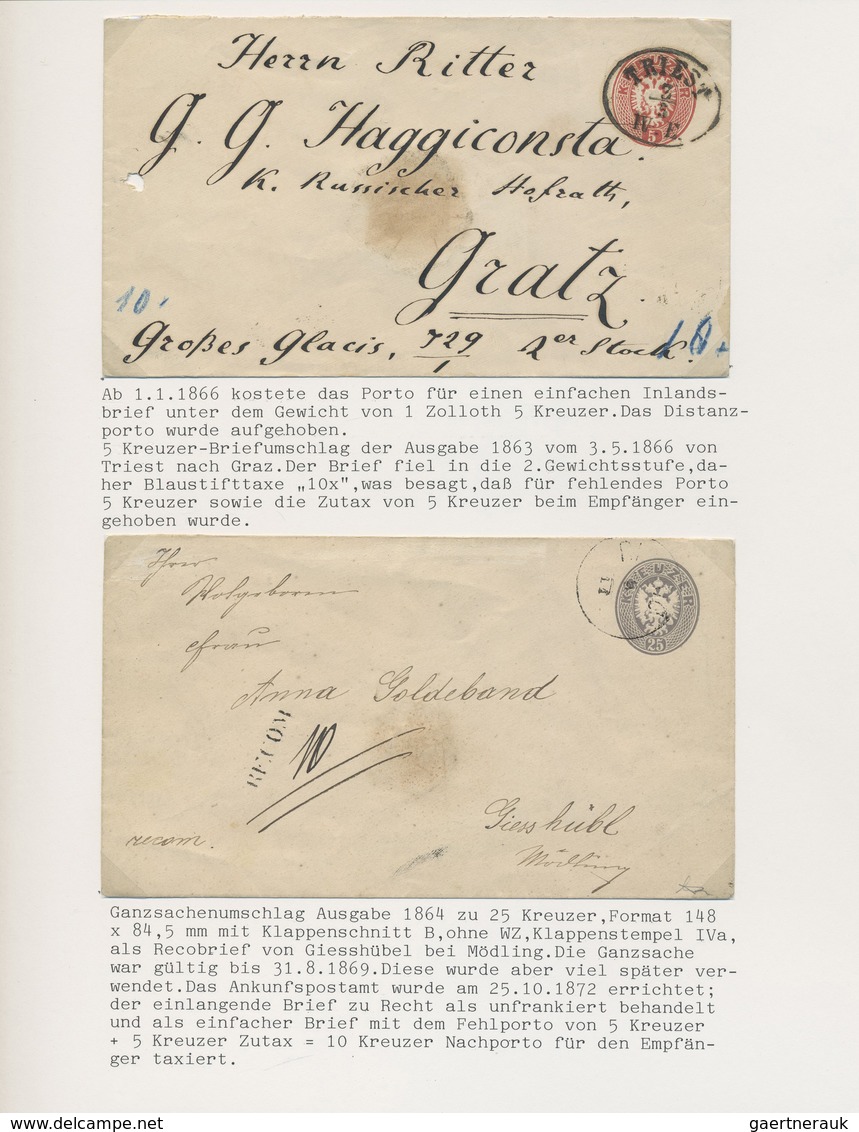 Herrn Ritter
G. G. Haggiconsta.
K. Russischer Hofrath,
Gratz
10.
10.
Großes Glacis, 729/1 2er Stock.
TRIEST
3/5
IV. F.
5
Ab 1.1.1866 kostete das Porto für einen einfachen Inlands-
brief unter dem Gewicht von 1 Zolloth 5 Kreuzer.Das Distanz-
porto wurde aufgehoben.
5 Kreuzer-Briefumschlag der Ausgabe 1863 vom 3.5.1866 von
Triest nach Graz.Der Brief fiel in die 2.Gewichtsstufe,da-
her Blaustifttaxe „10x",was besagt,daß für fehlendes Porto
5 Kreuzer sowie die Zutax von 5 Kreuzer beim Empfänger ein-
gehoben wurde.
Ihrer
Wolgeboren
Frau
Anna Goldeband
RECOM
10
Giesshübl
recom.
Mödling
KREUZER
25
Ganzsachenumschlag Ausgabe 1864 zu 25 Kreuzer,Format 148
x 84,5 mm mit Klappenschnitt B,ohne WZ,Klappenstempel IVa,
als Recobrief von Giesshübel bei Mödling.Die Ganzsache
war gültig bis 31.8.1869.Diese wurde aber viel später ver-
wendet.Das Ankunfspostamt wurde am 25.10.1872 errichtet;
der einlangende Brief zu Recht als unfrankiert behandelt
und als einfacher Brief mit dem Fehlporto von 5 Kreuzer
+ 5 Kreuzer Zutax = 10 Kreuzer Nachporto für den Empfän-
ger taxiert.
delcampe.net
gaertnerauk